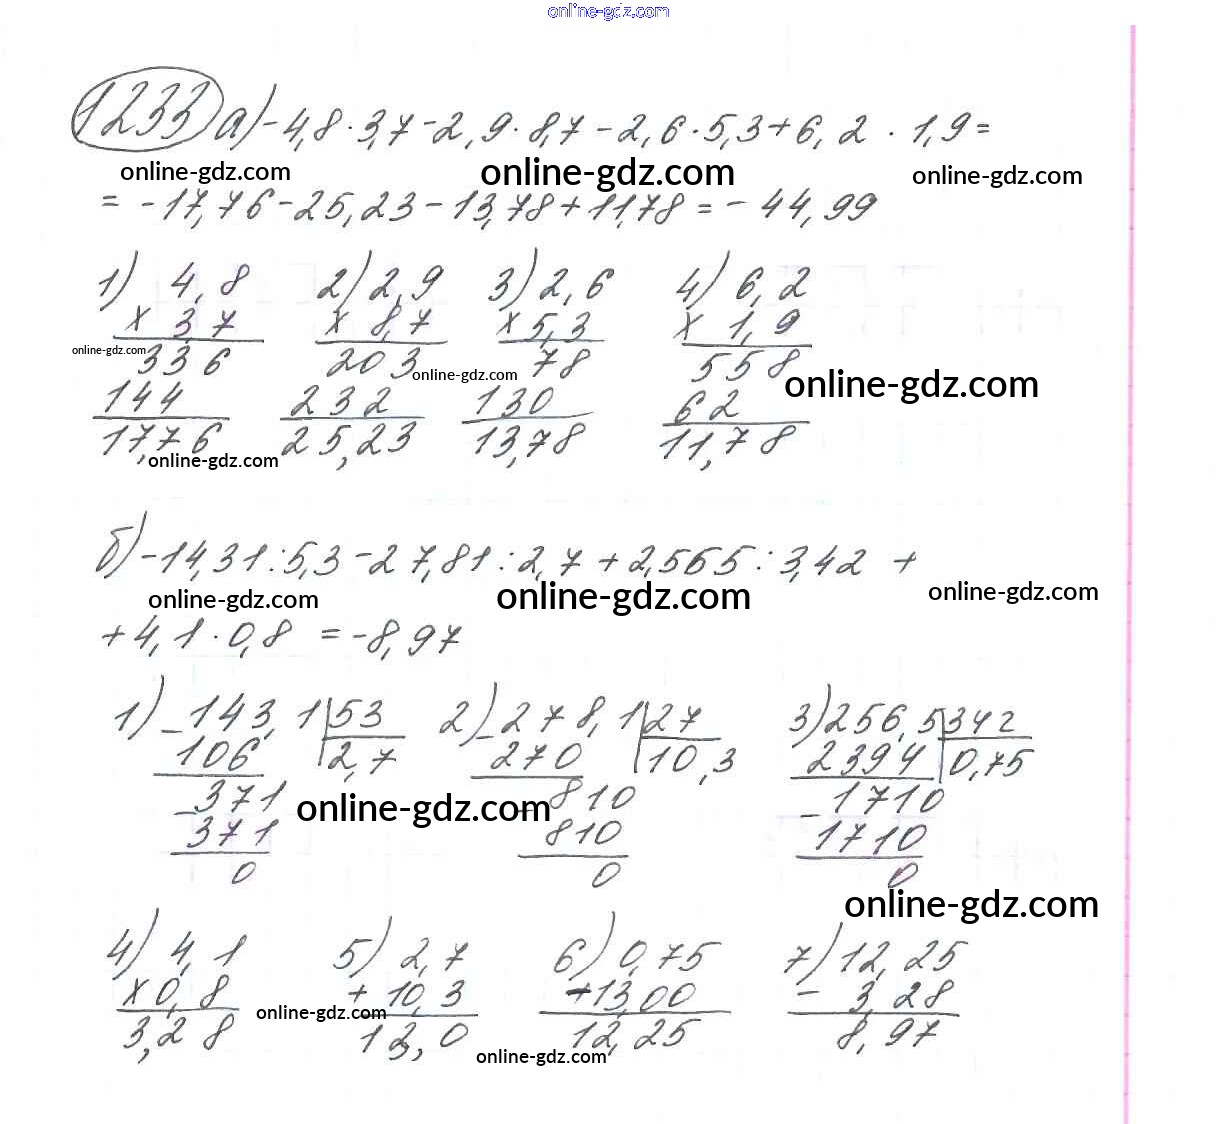 online-gdz.com
1233 а) -4,8 · 3,7 - 2,9 · 8,7 - 2,6 · 5,3 + 6,2 · 1,9 =
online-gdz.com online-gdz.com online-gdz.com
= -17,76 - 25,23 - 13,78 + 11,78 = - 44,99
1) 4,8 2) 2,9 3) 2,6 4) 6,2
x 3,7 x 8,7 x 5,3 x 1,9
online-gdz.com 336 203 online-gdz.com 78 558 online-gdz.com
144 232 130 62
17,76 25,23 13,78 11,78
online-gdz.com
б) -14,31 : 5,3 - 27,81 : 2,7 + 2,565 : 3,42 +
online-gdz.com online-gdz.com online-gdz.com
+ 4,1 · 0,8 = -8,97
1) - 143,1 | 53 2) - 278,1 | 27 3) 256,5 | 342
106 2,7 270 10,3 2394 0,75
- 371 online-gdz.com - 810 - 1710
371 810 1710
0 0 0
online-gdz.com
4) 4,1 5) 2,7 6) 0,75 7) 12,25
x 0,8 + 10,3 + 13,00 - 3,28
online-gdz.com
3,28 13,0 12,25 8,97
online-gdz.com